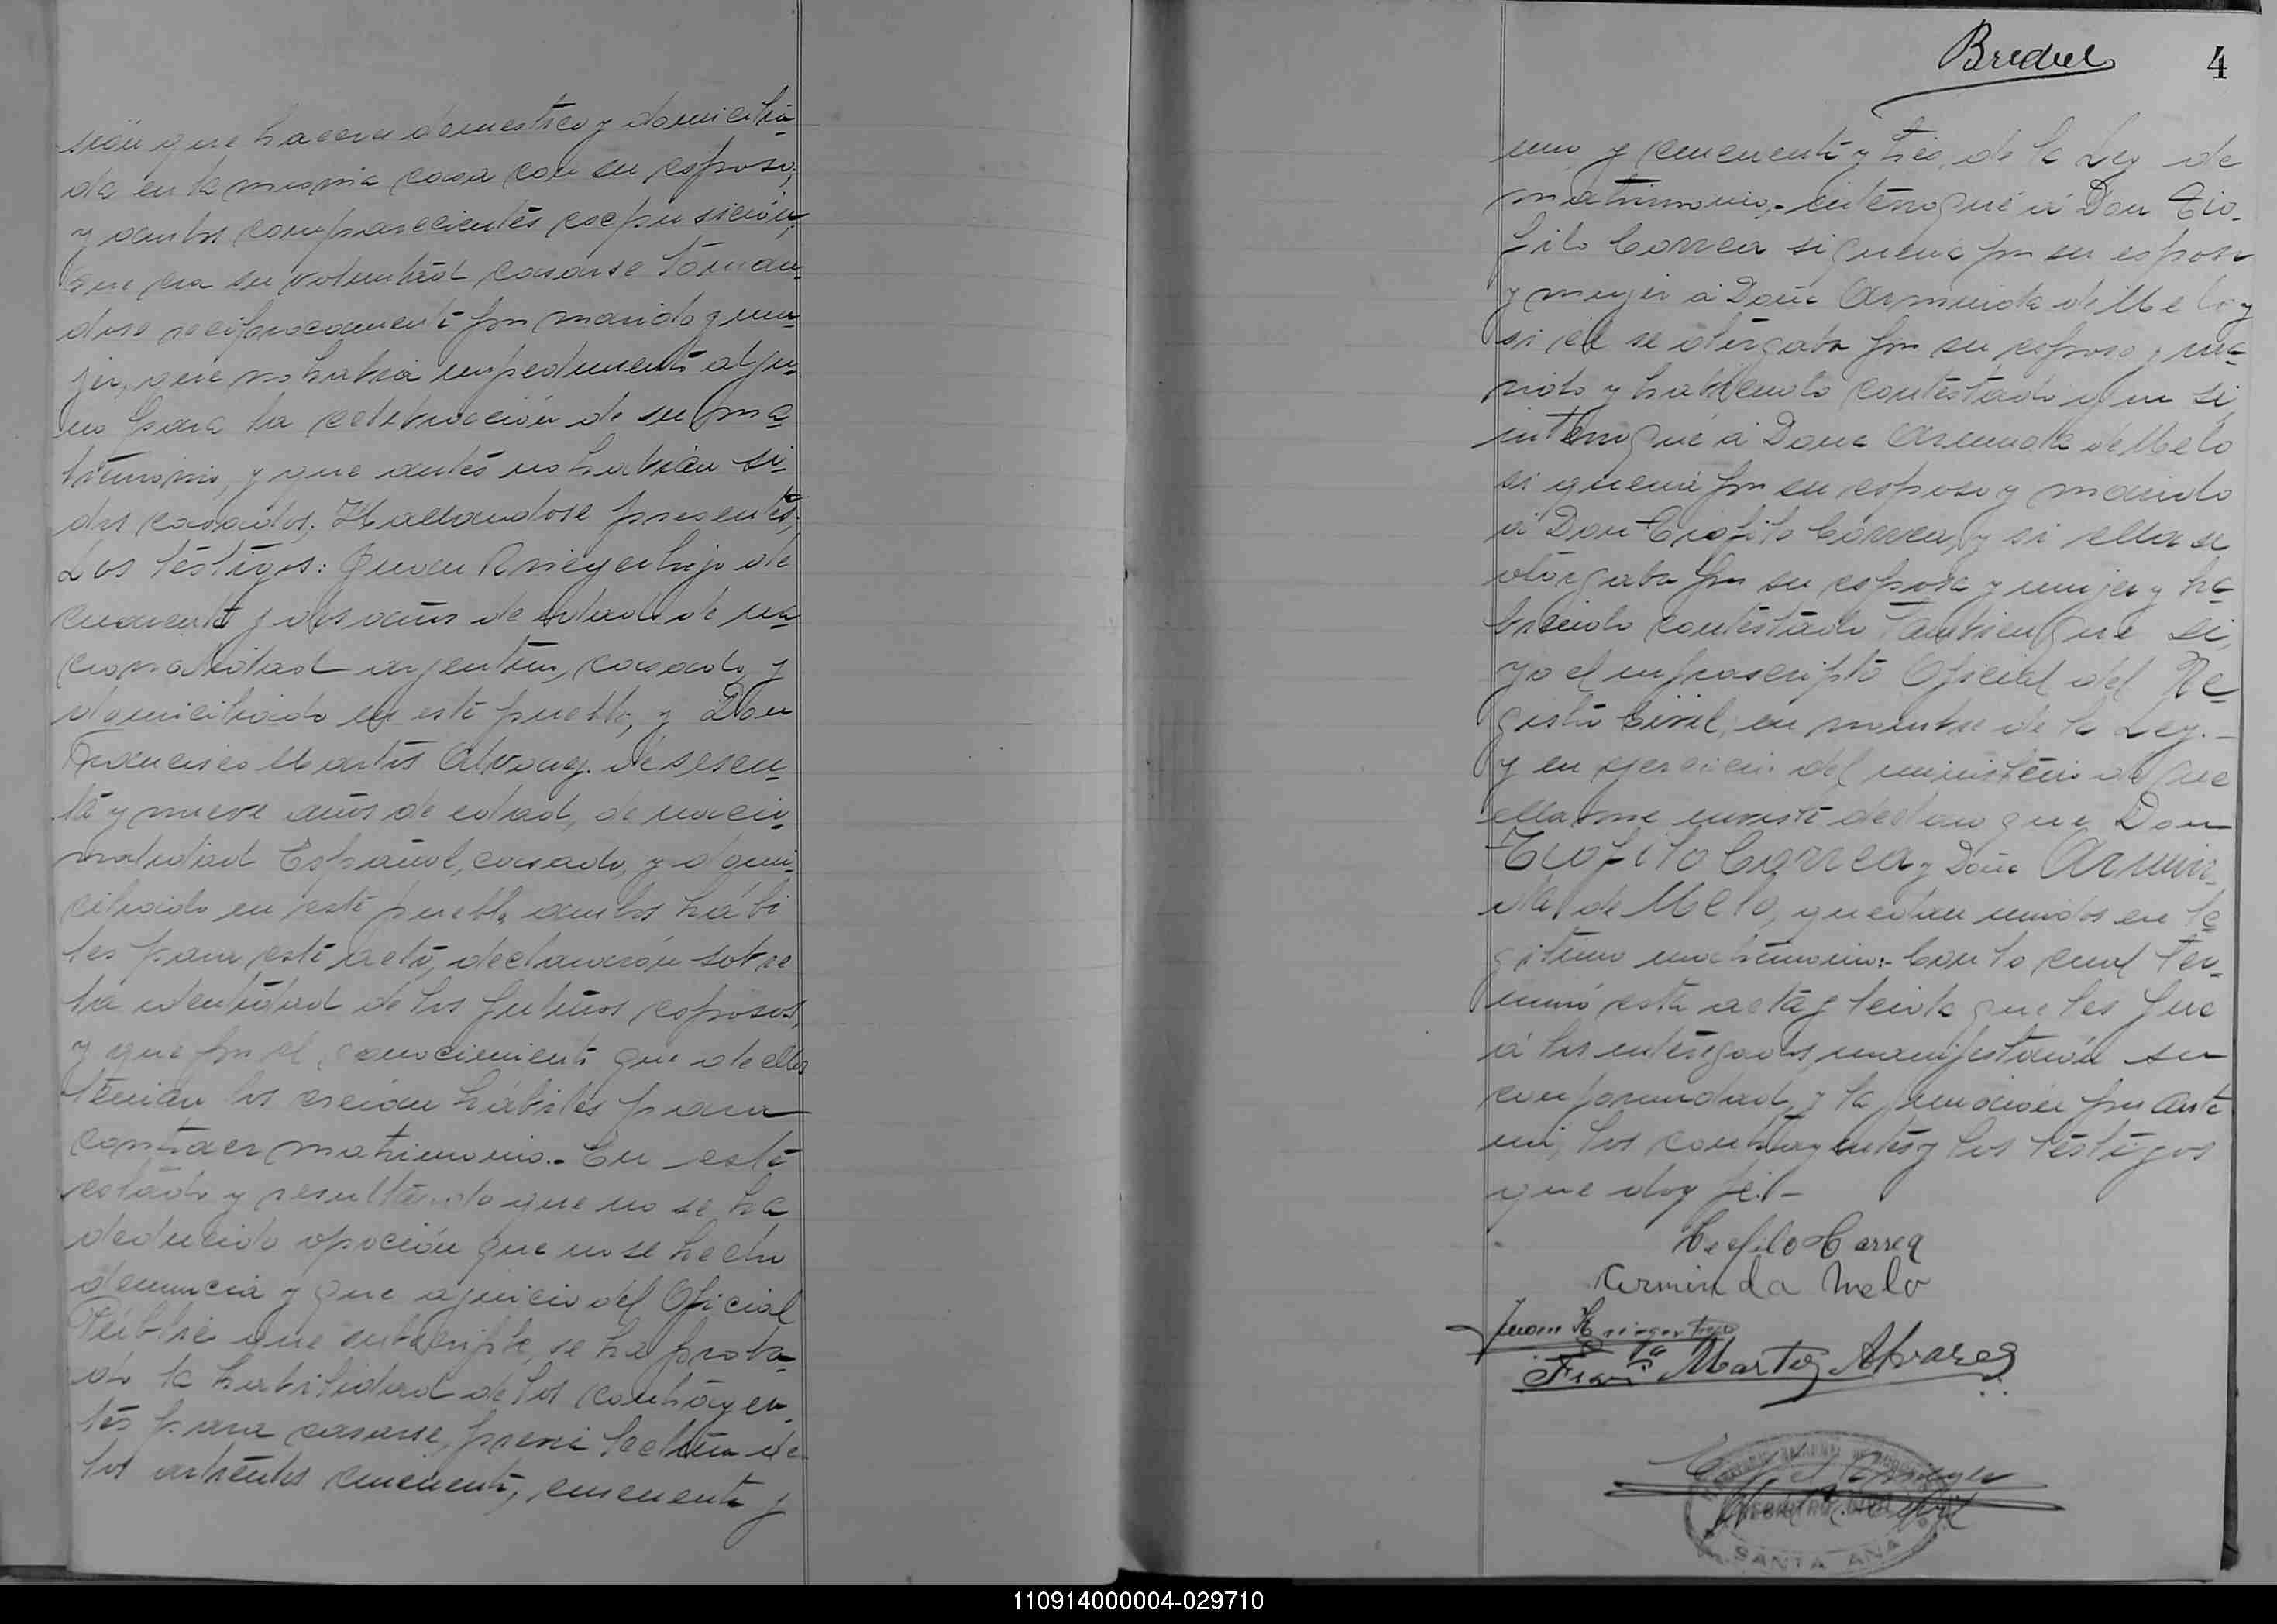 sion que haceres domesticos y domicilia-
da en la misma casa con su esposo;
y ambos comparecientes expusieron;
que era su voluntad casarse toman-
dose reciprocamente por marido y mu-
jer, que no habia impedimento algu-
no para la celebracion de su ma-
trimonio, y que antes no habian si-
dos casados. Hallandose presentes,
Los testigos: Juan Krieger hijo de
cuarenta y dos años de edad, de na-
cionalidad argentino, casado, y
domiciliado en este pueblo, y Don
Francisco Martos Alvarez de sesen-
ta y nueve años de edad, de nacio-
nalidad Español, casado, y domi-
ciliado en este pueblo, ambos hábi
les para este acto, declararón sobre
la identidad de los futuros esposos,
y que por el conocimiento que de ellos
tenian los creían hábiles para
contraer matrimonio.- En este
estado y resultando que no se ha
deducido oposición que no se hecho
denuncia y que a juicio del Oficial
Público que subscripto, se ha proba-
do la habilidad de los contrayen-
tes para casarse, previa lectura de
los artículos cincuenta, cincuenta y
Bredul
4
uno y cincuenta y tres, de la Ley de
matrimonio,- interrogué á Don Teo-
filo Correa si queria por su esposa
y mujer á Doña Arminda de Melo y
si él se otorgaba por su esposo y ma-
rido y habiendo contestado que si,
interrogué á Doña Arminda de Melo
si queria por su esposo y marido
á Don Teofilo Correa, y si ella se
otorgaba por su esposa y mujer y ha-
biendo contestado tambien que si,
yo el infrascripto Oficial del Re-
gistro Civil, en nombre de la Ley.-
y en ejercicio del ministerio de que
ella me inviste declaro que Don
Teofilo Correa y Doña Armin-
da de Melo, quedan unidos en le-
gitimo matrimonio:- Con lo cual ter-
minó esta acta y leida que les fue
á los interesados, manifestarón su
conformidad, y la firmarón por ante
mi, los contrayentes y los testigos
que doy fé.-
Teofilo Correa
Arminda Melo
Juan Krieger hijo
Franco Martos Alvarez
REGISTRO CIVIL
SANTA ANA
110914000004-029710